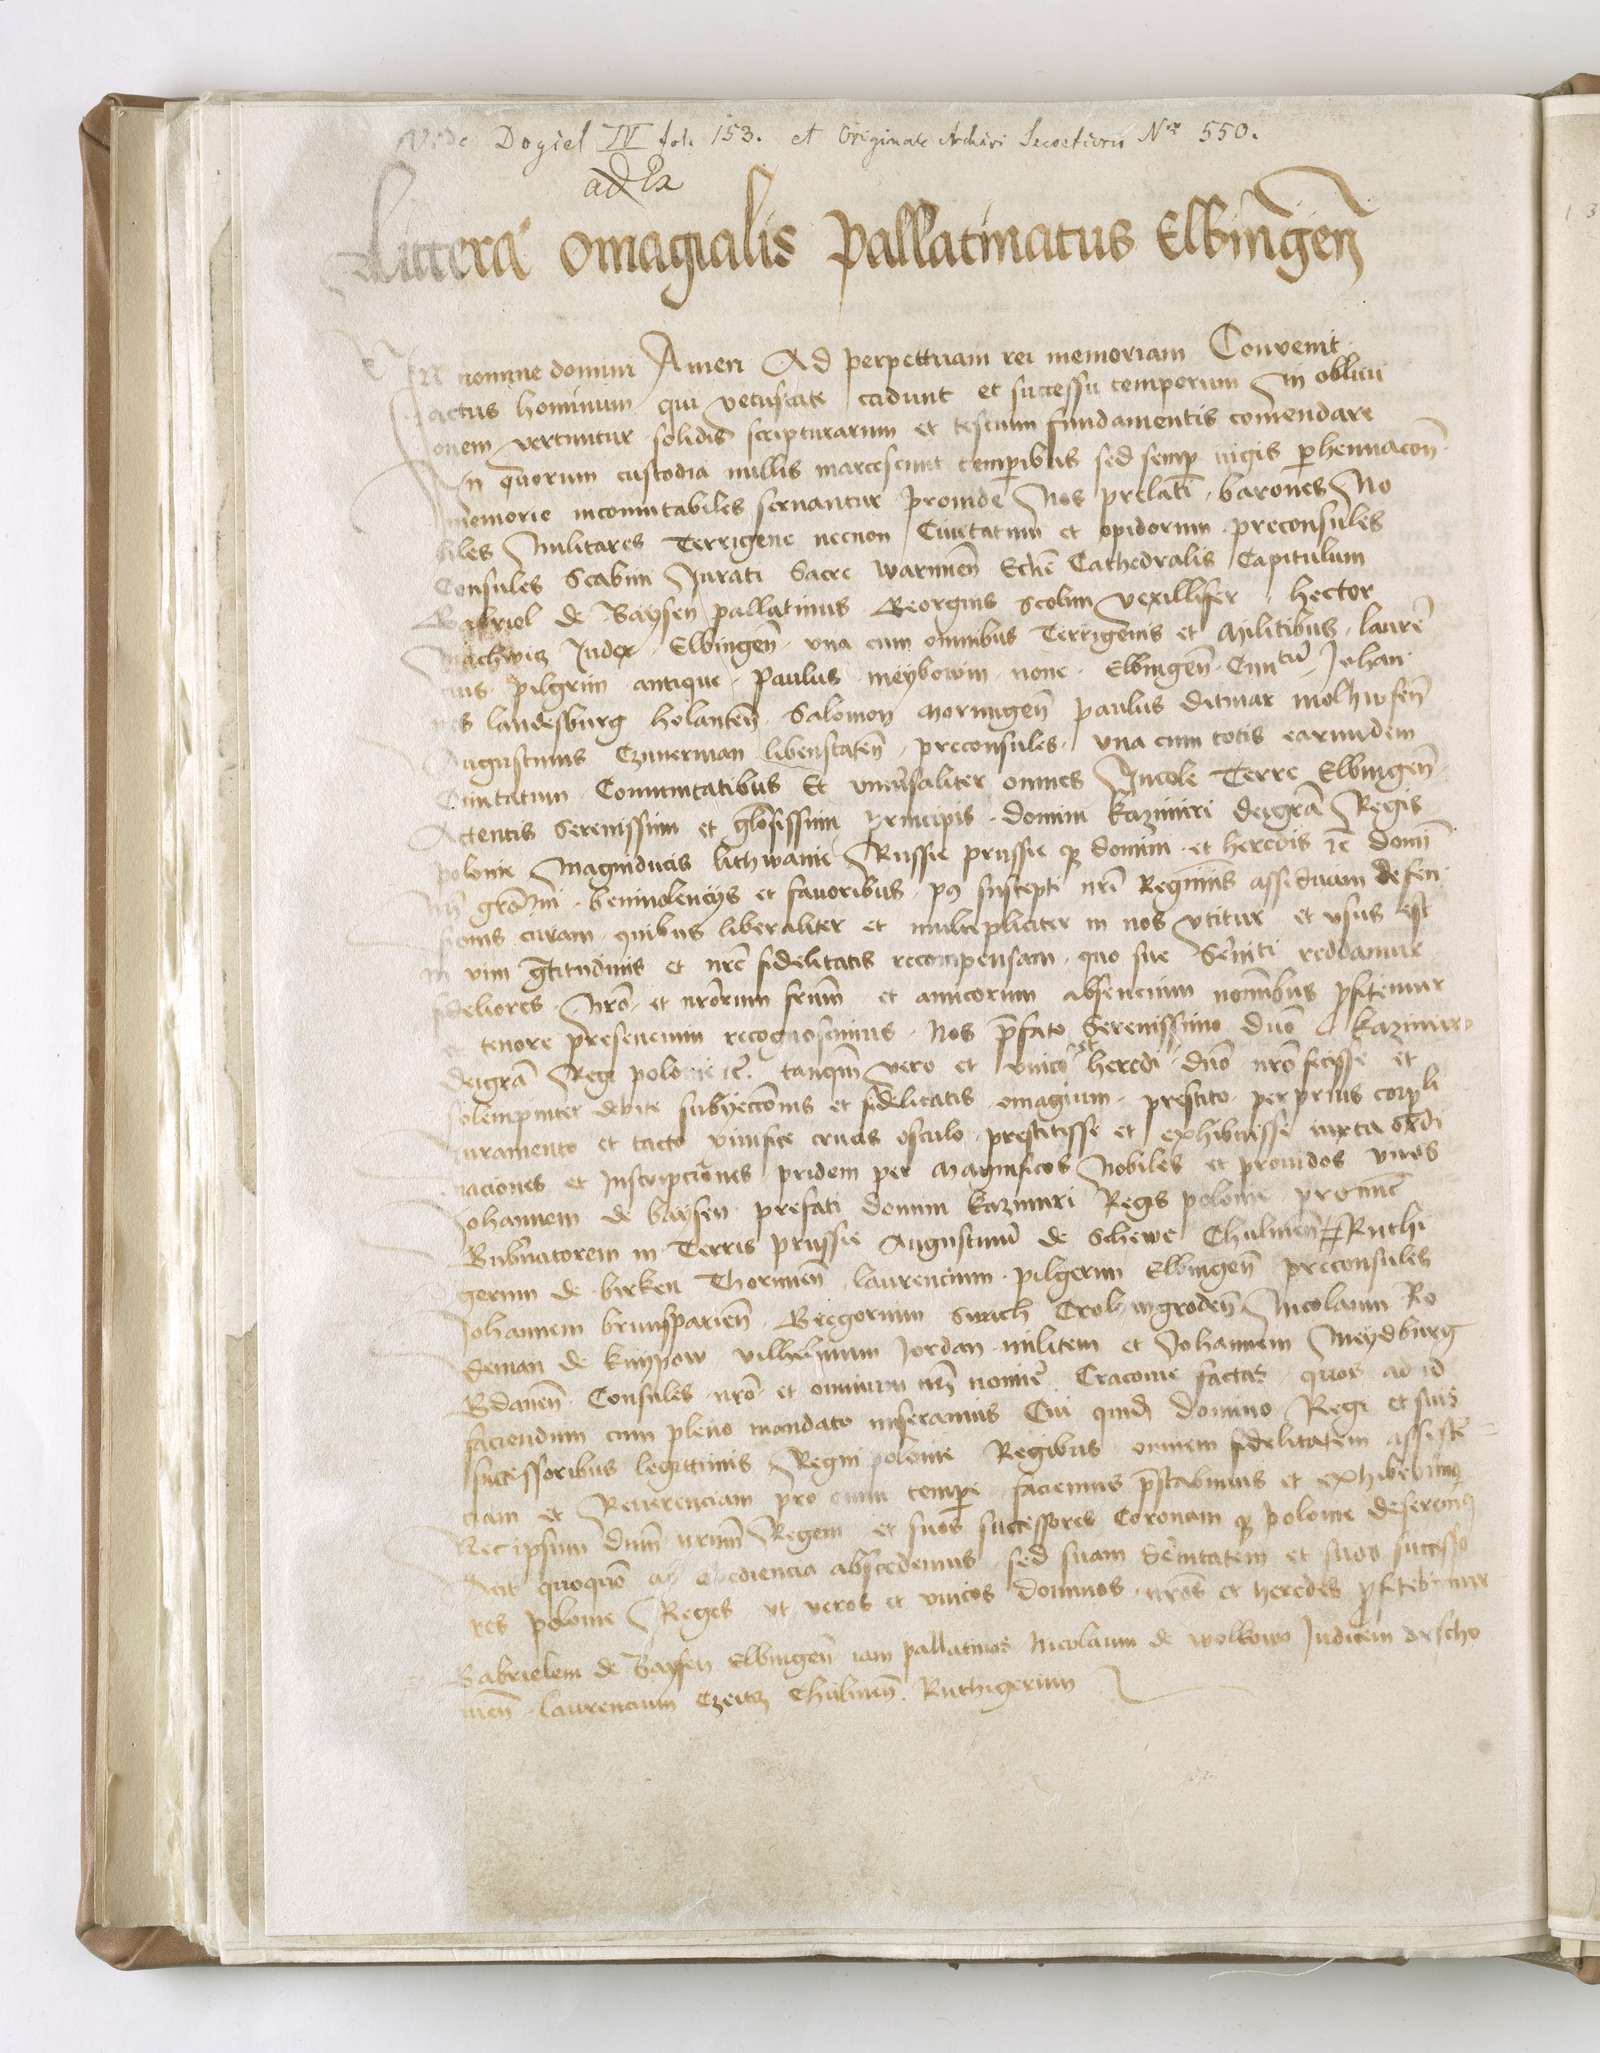 Vide Dogiel IV fol. 153. et Originale Archivi Secretioris Nro 550.
Littera omagialis Pallatinatus Elbingen̄
In nomine domini Amen Ad perpetuam rei memoriam Convenit
actus hominum qui vetustate cadunt et successu temporum In oblivi
onem vertuntur solidis scripturarum et testium fundamentis comendare
In quorum custodia nullis marcescunt temporibus sed semp iugis
memorie incomutabiles servantur proinde Nos prelati barones No
biles Militares Terrigene necnon Civitatum et opidorum preconsules
Consules Scabini Jurati Sacre warmien̄ Ecīe Cathedralis Capitulum
Gabriel de Baysen pallatinus Georgius Scolim vexillifer hector
Machwicz Judex Elbingen̄ una cum omnibus Terrigenis et Militibus lauren̄
cius pilgrim antique Paulus meybowm nove Elbingen̄ Johan
nes landesburg holanten̄ Salomon morungen̄ paulus ditmar molhwsen̄
Augustinus Czymerman libenstaten̄ preconsules una cum totis earundem
Civitatum Comunitatibus Et universaliter omnes Incole Terre Elbingen̄
Attentis Serenissimi et glosissimi principis domini kazimiri deigrā Regis
polonie Magniducis lithwanie Russie prussie q domini et heredis ec̄ domī
nrī grosī benivolencijs et favoribus suscepti nrī Regiminis assiduam defen
sionis curam quibus liberaliter et multipliciter in nos utitur et usus est
in vim gratitudinis et nrē fidelitatis recompensam quo sue Sernti reddamur
fideliores nrō et nrorum frūm et amicorum absencium nominibus pfitemur
et tenore presencium recognoscimus Nos prefato Serenissimo dnō kazimiro
deigrā Regi polonie ec̄ tanqm̄ vero et unico heredi dnō nrō fecisse et
solempniter debite subyeccionis et fidelitatis omagium prestito per prius corpli
iuramento et tacto vivifice crucis osculo prestitisse et exhibuisse iuxta ordi
naciones et Inscripciones pridem per Magnificos Nobiles et providos viros
Johannem de baysen prefati domini kazimiri Regis polonie
Gubnatorem in Terris prussie Augustinū de Schewe Chulmen̄ # Ruthi
gerum de birken Thorunien̄ laurencium pilgerim Elbingen̄ preconsules
Johannem brunsparien̄ Gregorium Swach Nicolaum Ro
deman de knypow vilhelmum Jordan militem et Johannem Meydburg
Gdanen̄ Consules nrō et omnium nrī nomīe Cracovie factas quos ad id
faciendum cum pleno mandato miseramus Cui quidē domino Regi et suis
successoribus legittimis Regni polonie Regibus omnem fidelitatem assisten̄
ciam et Reverenciam pro omni tempe faciemus prestabimus et exhibebimus
Nec ipsum dnm̄ nrum Regem et suos successores Coronam q polonie deseremus
aut quoquō ab obediencia abscedemus sed suam Sernitatem et suos successo
res polonie Reges ut veros et unicos dominos nros et heredes pfitebimur
Gabrielem de Baysen Elbingen̄ iam pallatinos Nicolaum de wolkowo Judicem dirscho
vien̄ laurencium Czeitz Chulmen̄ Ruthigerum